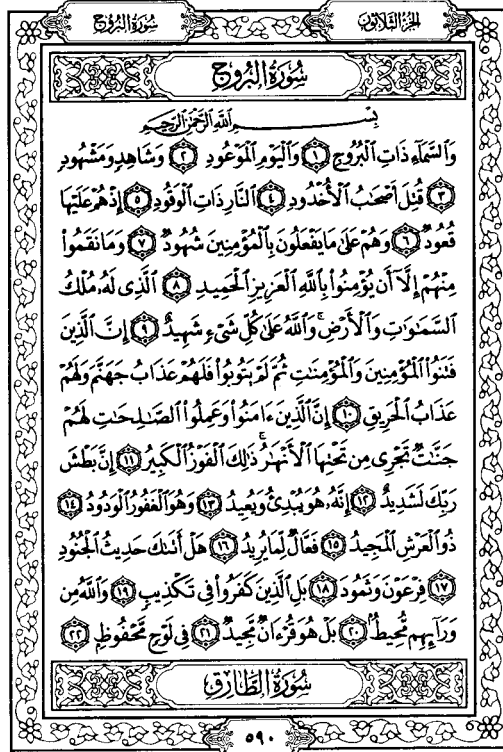 سُورَةُ البُرُوجِ الجُزْءُ الثَّلَاثُونَ
سُورَةُ البُرُوجِ
بِسْمِ اللَّهِ الرَّحْمَٰنِ الرَّحِيمِ
وَٱلسَّمَآءِ ذَاتِ ٱلۡبُرُوجِ ١ وَٱلۡيَوۡمِ ٱلۡمَوۡعُودِ ٢ وَشَاهِدٖ وَمَشۡهُودٖ
٣ قُتِلَ أَصۡحَٰبُ ٱلۡأُخۡدُودِ ٤ ٱلنَّارِ ذَاتِ ٱلۡوَقُودِ ٥ إِذۡ هُمۡ عَلَيۡهَا
قُعُودٞ ٦ وَهُمۡ عَلَىٰ مَا يَفۡعَلُونَ بِٱلۡمُؤۡمِنِينَ شُهُودٞ ٧ وَمَا نَقَمُواْ
مِنۡهُمۡ إِلَّآ أَن يُؤۡمِنُواْ بِٱللَّهِ ٱلۡعَزِيزِ ٱلۡحَمِيدِ ٨ ٱلَّذِي لَهُۥ مُلۡكُ
ٱلسَّمَٰوَٰتِ وَٱلۡأَرۡضِۚ وَٱللَّهُ عَلَىٰ كُلِّ شَيۡءٖ شَهِيدٌ ٩ إِنَّ ٱلَّذِينَ
فَتَنُواْ ٱلۡمُؤۡمِنِينَ وَٱلۡمُؤۡمِنَٰتِ ثُمَّ لَمۡ يَتُوبُواْ فَلَهُمۡ عَذَابُ جَهَنَّمَ وَلَهُمۡ
عَذَابُ ٱلۡحَرِيقِ ١٠ إِنَّ ٱلَّذِينَ ءَامَنُواْ وَعَمِلُواْ ٱلصَّٰلِحَٰتِ لَهُمۡ
جَنَّٰتٞ تَجۡرِي مِن تَحۡتِهَا ٱلۡأَنۡهَٰرُۚ ذَٰلِكَ ٱلۡفَوۡزُ ٱلۡكَبِيرُ ١١ إِنَّ بَطۡشَ
رَبِّكَ لَشَدِيدٌ ١٢ إِنَّهُۥ هُوَ يُبۡدِئُ وَيُعِيدُ ١٣ وَهُوَ ٱلۡغَفُورُ ٱلۡوَدُودُ ١٤
ذُو ٱلۡعَرۡشِ ٱلۡمَجِيدُ ١٥ فَعَّالٞ لِّمَا يُرِيدُ ١٦ هَلۡ أَتَىٰكَ حَدِيثُ ٱلۡجُنُودِ
١٧ فِرۡعَوۡنَ وَثَمُودَ ١٨ بَلِ ٱلَّذِينَ كَفَرُواْ فِي تَكۡذِيبٖ ١٩ وَٱللَّهُ مِن
وَرَآئِهِم مُّحِيطُۢ ٢٠ بَلۡ هُوَ قُرۡءَانٞ مَّجِيدٞ ٢١ فِي لَوۡحٖ مَّحۡفُوظِۭ ٢٢
سُورَةُ الطَّارِقِ
٥٩٠